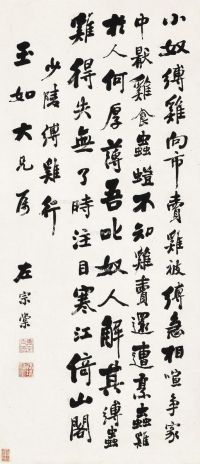 小奴縛雞向市賣雞被縛急相喧爭家
中厭雞食蟲螘不知雞賣還遭烹蟲雞
於人何厚薄吾叱奴人解其縛蟲
雞得失無了時注目寒江倚山閣
少陵縛雞行
玉如大兄屬
左宗棠